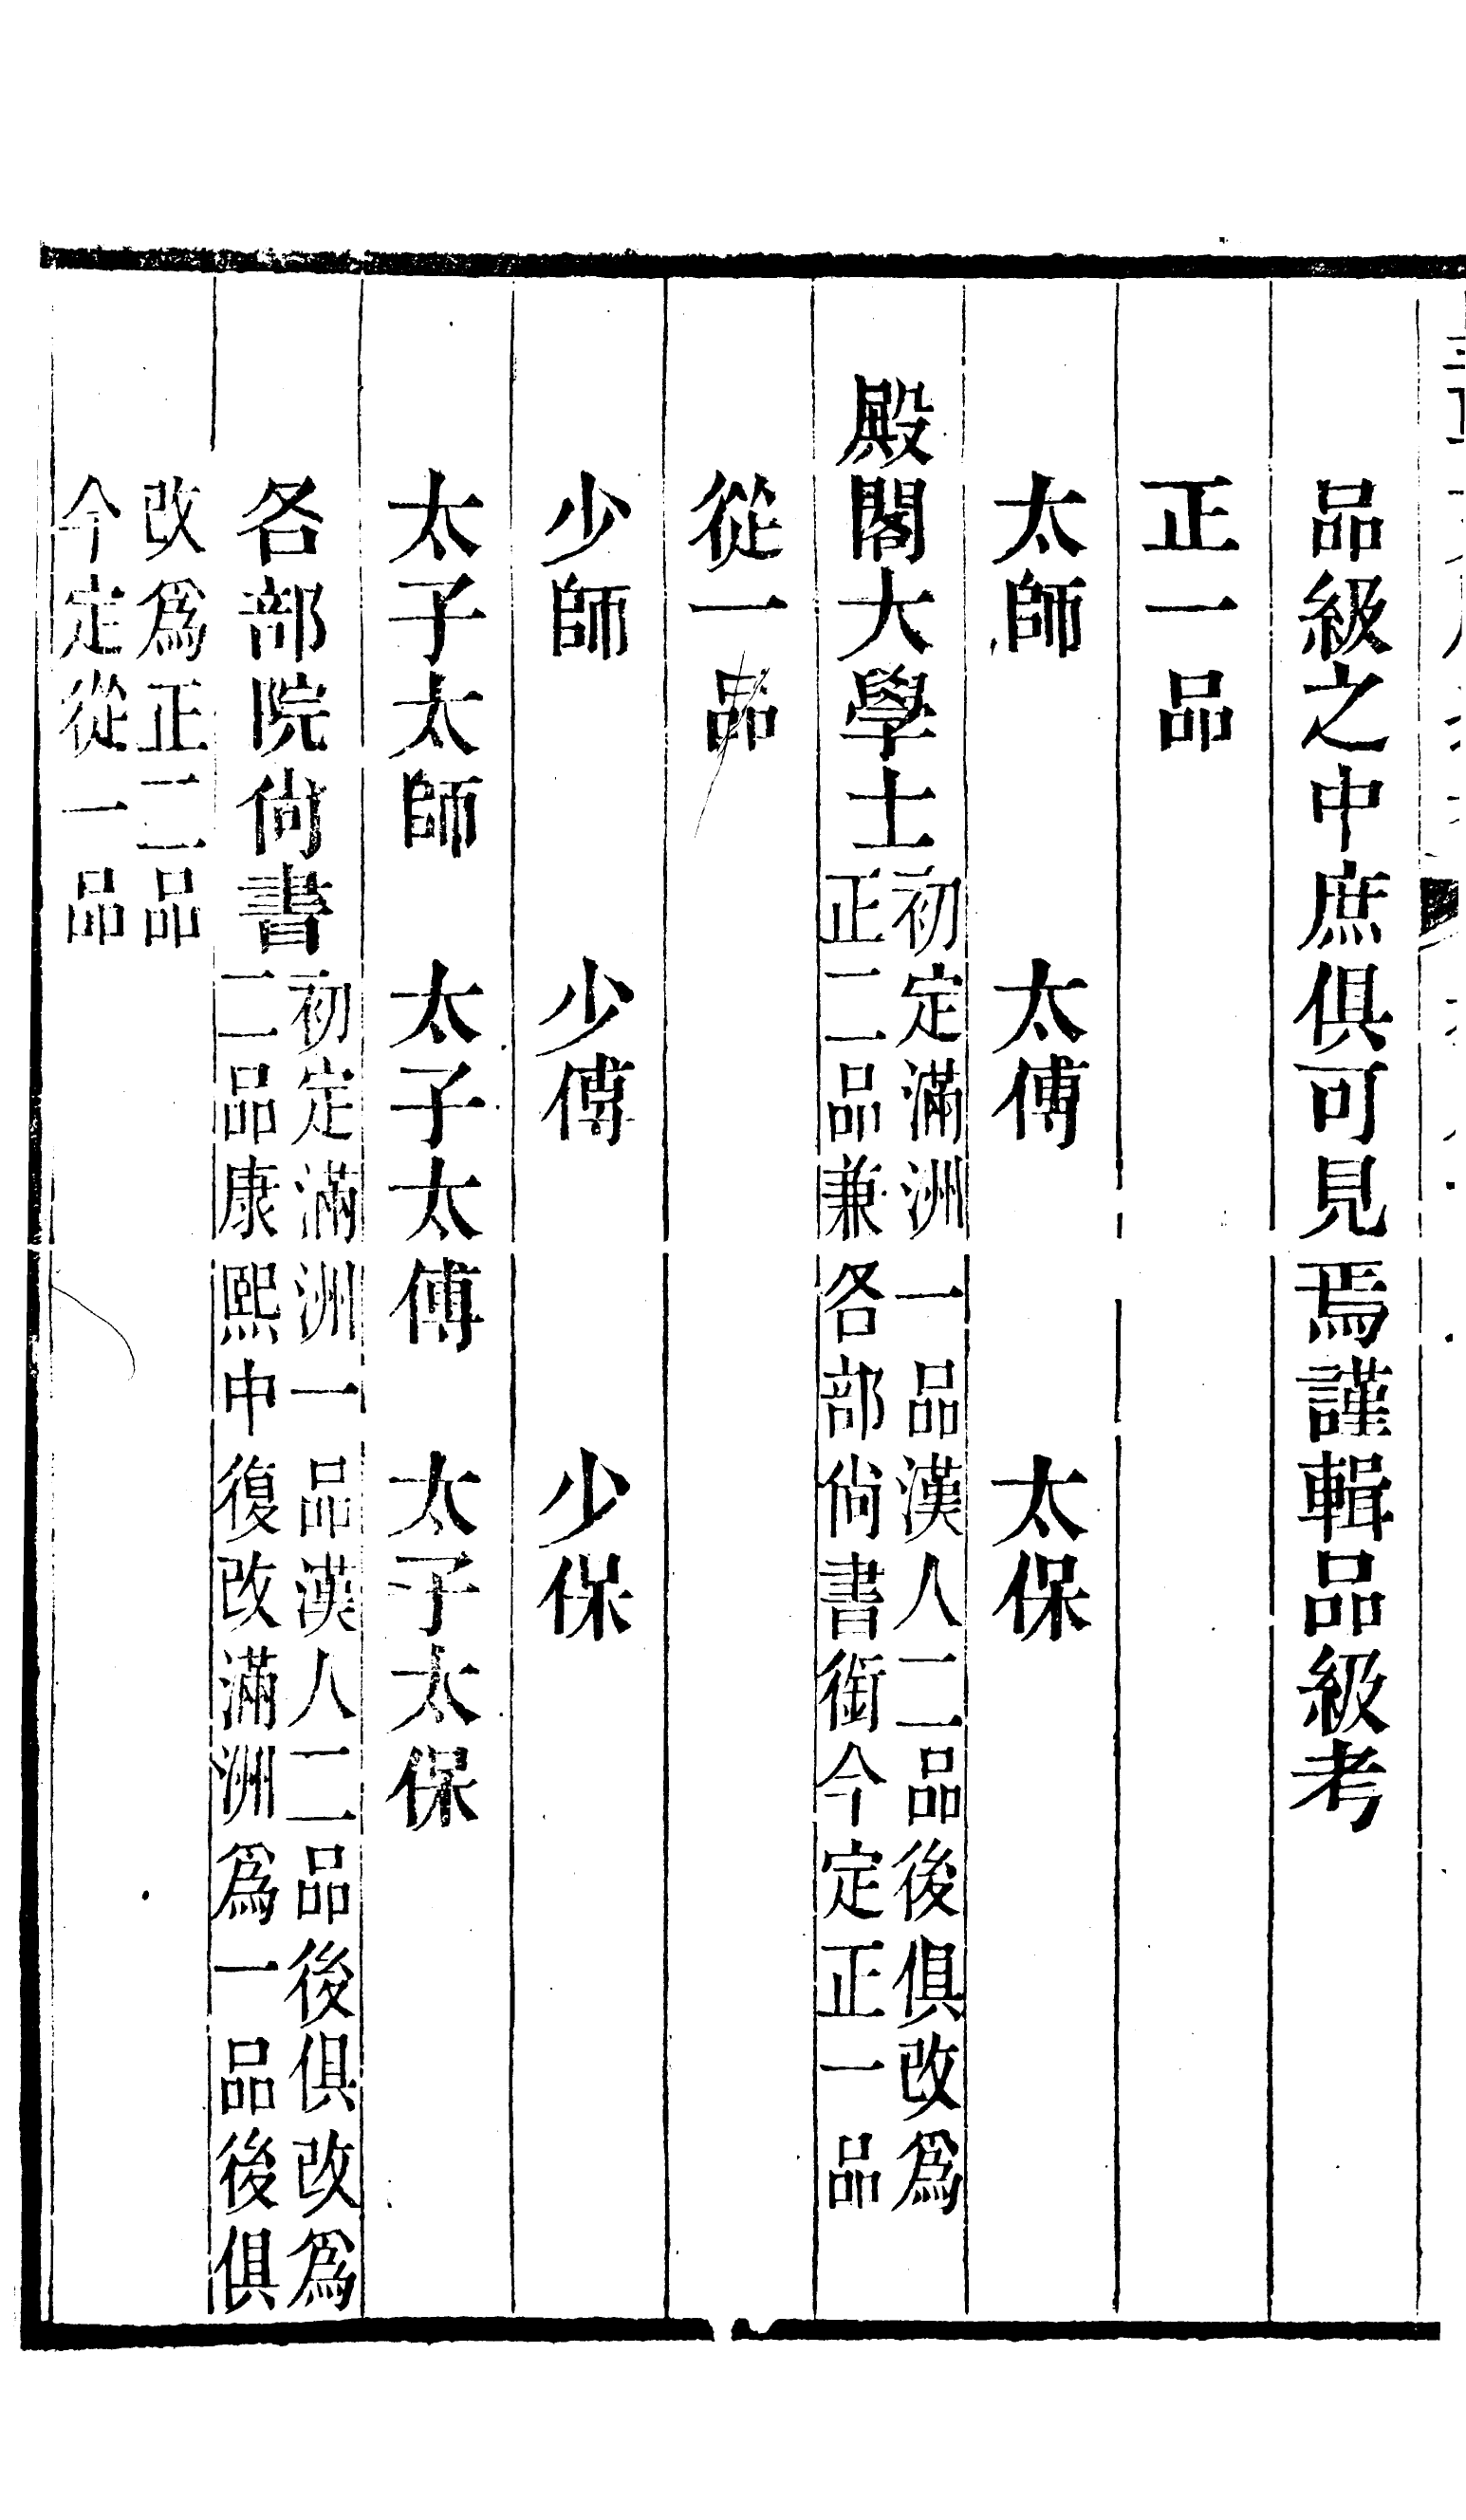 品級之中庶俱可見焉謹輯品級考
正一品
太師 太傅 太保
殿閣大學士初定滿洲一品漢人二品後俱改爲
正二品兼各部尙書銜今定正一品
從一品
少師 少傅 少保
太子太師 太子太傅 太子太保
各部院尙書初定滿洲一品漢人二品後俱改爲
二品康熙中復改滿洲爲一品後俱
改爲正二品
今定從一品